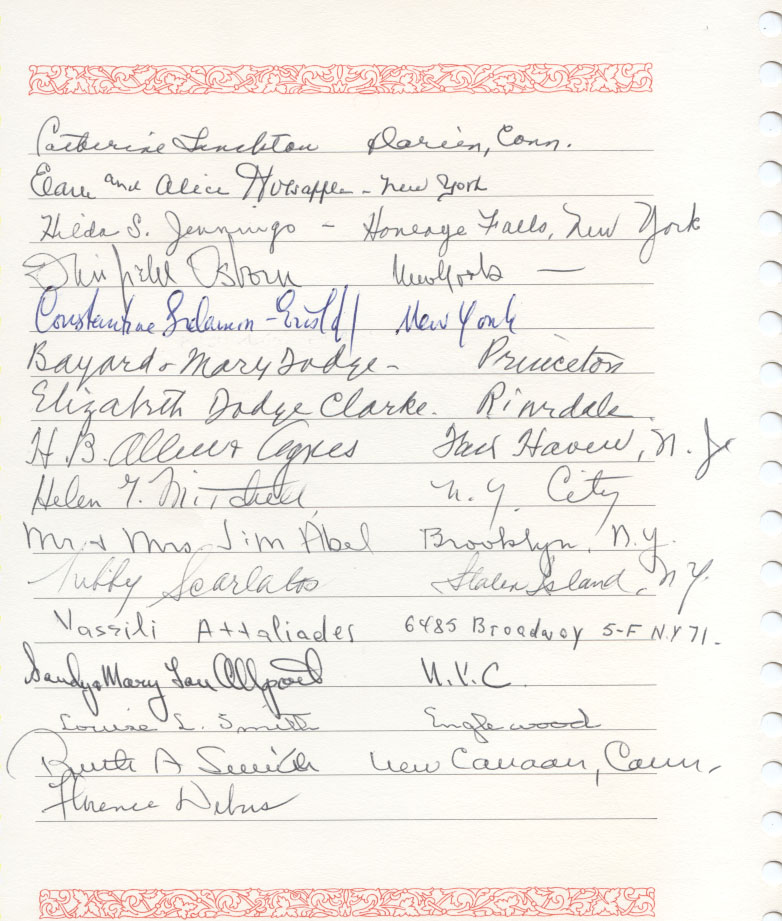 Catherine Darien, Conn.
and Alice - New York
Hilda S. Jennings - Honeoye Falls, New York
Osborn New York —
Constantine New York
Bayard & Mary Dodge - Princeton
Elizabeth Dodge Clarke. Riverdale
H. B. Allen & Agnes Fair Haven, N. J
Helen G. Mitchell N. Y. City
Mr & Mrs Jim Abel Brooklyn, N.Y.
Tubby Scarlatos Staten Island, N.Y.
Vassili Attaliades 6485 Broadway 5-F N.Y 71.
Sandy & Mary Lou Allport N.Y.C.
Louise L. Smith Englewood
Ruth A Smith New Canaan, Conn.
Florence